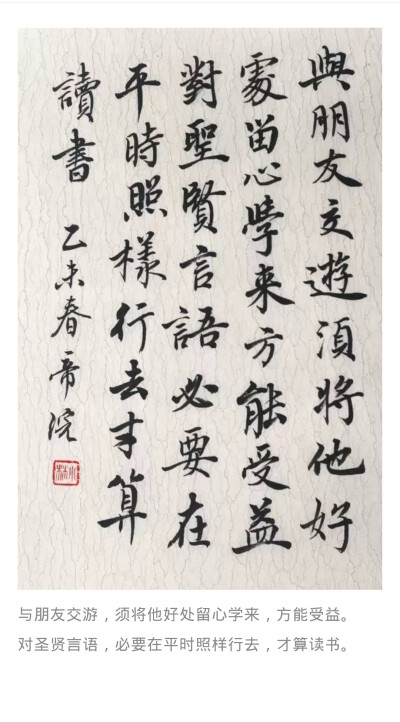 與朋友交遊須將他好
處留心學来方能受益
對聖賢言語必要在
平時照樣行去才算
讀書 乙未春帝浣
与朋友交游，须将他好处留心学来，方能受益。
对圣贤言语，必要在平时照样行去，才算读书。